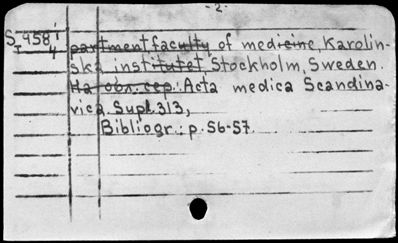 - 2 -
S-458 i
I 4
partment faculty of medicine, Karolin-
ska institutet Stockholm, Sweden.
На обл. сер.: Acta medica Scandina-
vica, Supl. 313,
Bibliogr.: p. 56-57.